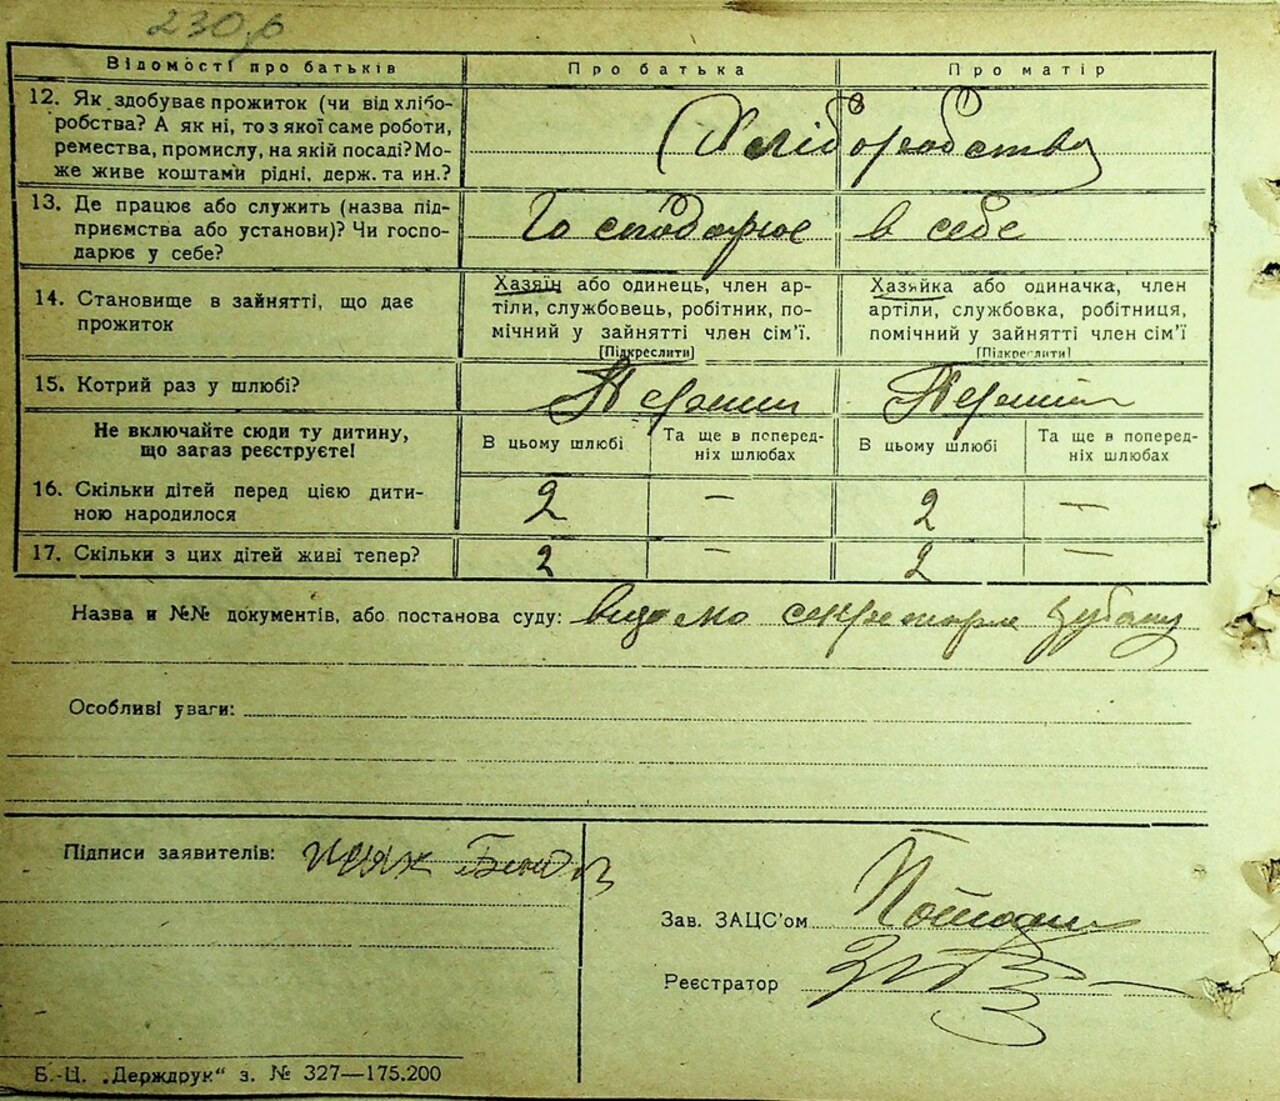 230
Відомості про батьків
Про батька
Про матір
12. Як здобуває прожиток (чи від хлібо-
робства? А як ні, то з якої саме роботи,
ремества, промислу, на якій посаді? Мо-
же живе коштами рідні, держ. та ин.?
Хліборобство
13. Де працює або служить (назва під-
приємства або установи)? Чи госпо-
дарює у себе?
Господарює в себе
14. Становище в зайнятті, що дає
прожиток
Хазяїн або одинець, член ар-
тіли, службовець, робітник, по-
мічний у зайнятті член сім'ї.
[Підкреслити]
Хазяйка або одиначка, член
артіли, службовка, робітниця,
помічний у зайнятті член сім'ї
[Підкреслити]
15. Котрий раз у шлюбі?
Перший
Перший
Не включайте сюди ту дитину,
що загаз реєструєте!
В цьому шлюбі
Та ще в поперед-
ніх шлюбах
В цьому шлюбі
Та ще в поперед-
ніх шлюбах
16. Скільки дітей перед цією дити-
ною народилося
2 — 2 —
17. Скільки з цих дітей живі тепер?
2 — 2 —
Назва и №№ документів, або постанова суду: видомо секретарю
Особливі уваги:
Підписи заявителів:
Зав. ЗАЦС'ом
Реєстратор
Б.-Ц. „Держдрук" з. № 327—175.200